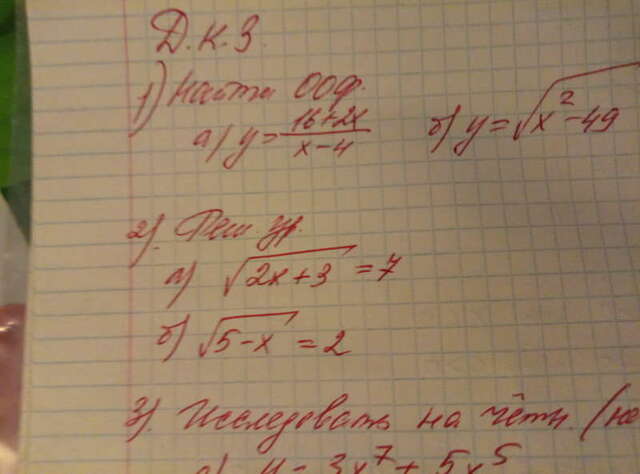 Д.к.3.
1) Найти ООФ.
а) y = (16+2x)/(x-4) б) y = √(x²-49)
2) Реш. ур.
а) √(2x+3) = 7
б) √(5-x) = 2
3) Исследовать на чётн. (не
а) y = 3x⁷ + 5x⁵